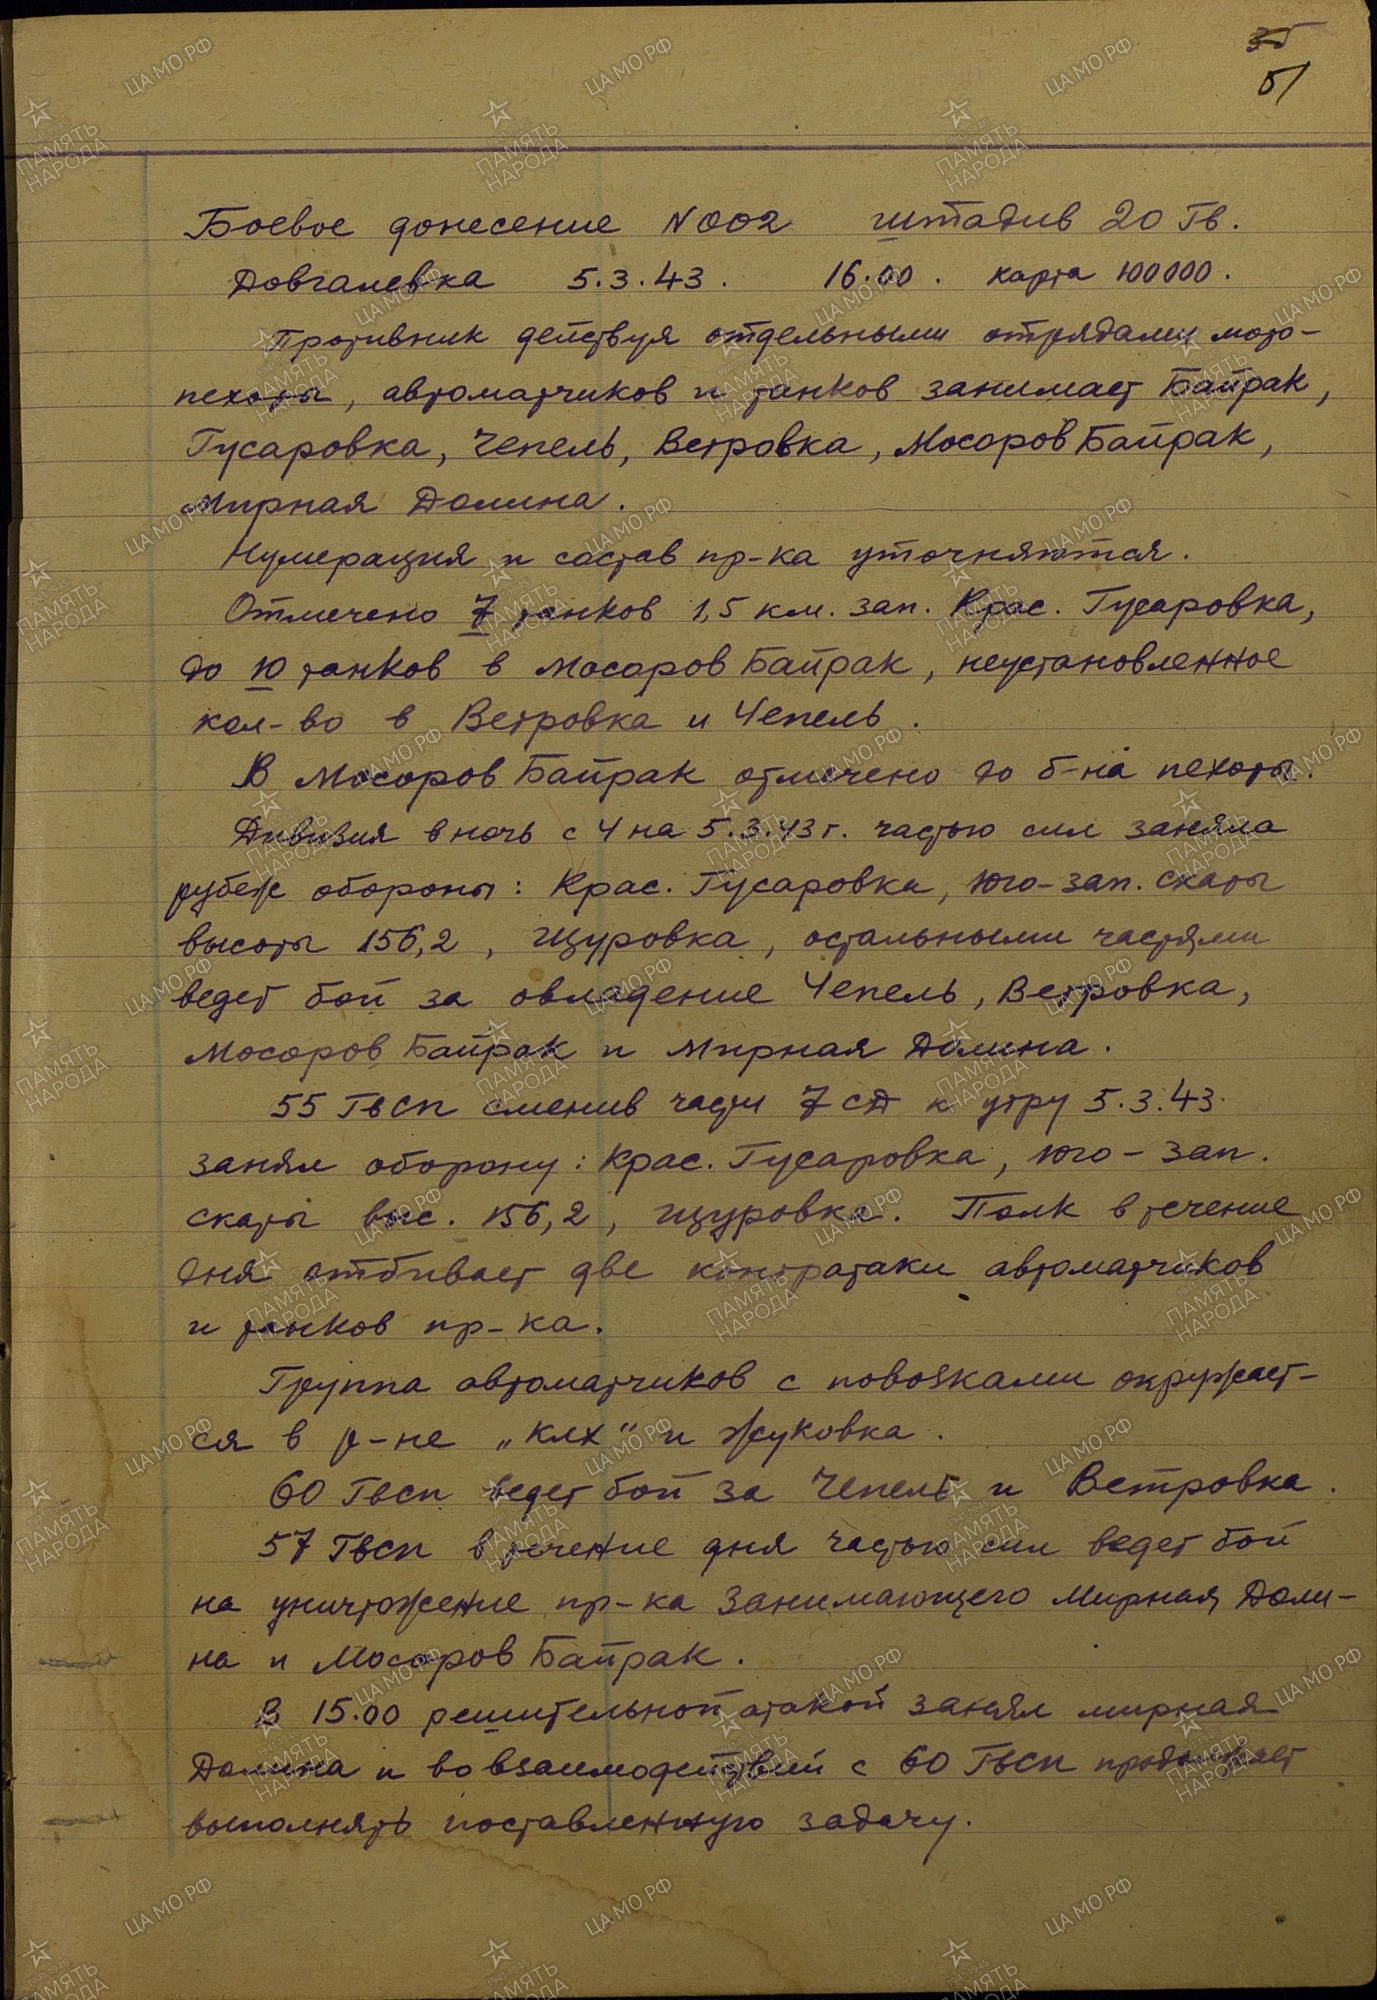 35
51
Боевое донесение N002 штадив 20 Гв.
Довгалевка 5.3.43. 16.00. карта 100000.
Противник действуя отдельными отрядами мото-
пехоты, автоматчиков и танков занимает Байрак,
Гусаровка, Чепель, Ветровка, Мосоров Байрак,
Мирная Долина.
Нумерация и состав пр-ка уточняются.
Отмечено 7 танков 1,5 км. зап. Крас. Гусаровка,
до 10 танков в Мосоров Байрак, неустановленное
кол-во в Ветровка и Чепель.
В Мосоров Байрак отмечено до б-на пехоты.
Дивизия в ночь с 4 на 5.3.43 г. частью сил заняла
рубеж обороны: Крас. Гусаровка, юго-зап. скаты
высоты 156,2, Щуровка, остальными частями
ведет бой за овладение Чепель, Ветровка,
Мосоров Байрак и Мирная Долина.
55 Гвсп сменив части 7 сд к утру 5.3.43.
занял оборону: Крас. Гусаровка, юго-зап.
скаты выс. 156,2, Щуровка. Полк в течение
дня отбивает две контратаки автоматчиков
и танков пр-ка.
Группа автоматчиков с повозками окружает-
ся в р-не „клх" и Жуковка.
60 Гвсп ведет бой за Чепель и Ветровка.
57 Гвсп в течение дня частью сил ведет бой
на уничтожение пр-ка занимающего Мирная Доли-
на и Мосоров Байрак.
В 15.00 решительной атакой занял мирная
Долина и во взаимодействии с 60 Гвсп продолжает
выполнять поставленную задачу.
ЦА МО РФ
ПАМЯТЬ
НАРОДА